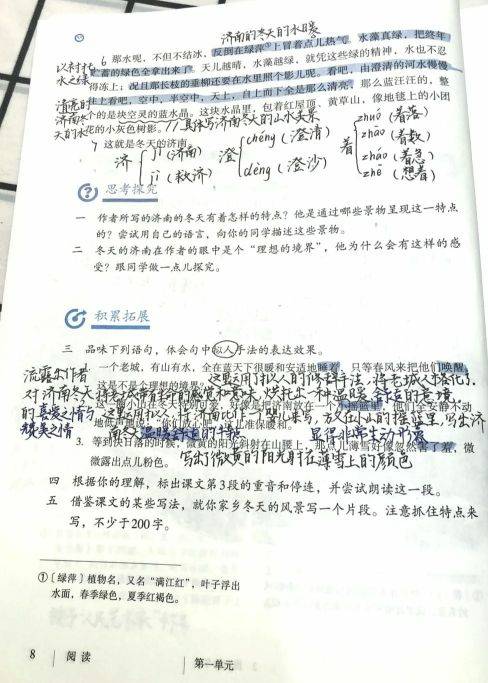 济南的冬天的水暖
6 那水呢，不但不结冰，反倒在绿萍①上冒着点儿热气。水藻真绿，把终年
贮蓄的绿色全拿出来了。天儿越晴，水藻越绿，就凭这些绿的精神，水也不忍
得冻上；况且那长枝的垂柳还要在水里照个影儿呢。看吧，由澄清的河水慢慢
往上看吧，空中，半空中，天上，自上而下全是那么清亮，那么蓝汪汪的，整
个的是块空灵的蓝水晶。这块水晶里，包着红屋顶、黄草山，像地毯上的小团
花的小灰色树影。
7 这就是冬天的济南。
以衬托
水之绿
清亮的
济南冬
天的水
//具体写济南冬天的山水美景
济 jǐ（济南） jì（救济）
澄 chéng（澄清） dèng（澄沙）
着 zhuó（着落） zhāo（着数） zháo（着急） zhe（想着）
思考探究
一 作者所写的济南的冬天有着怎样的特点？他是通过哪些景物呈现这一特点
的？尝试用自己的语言，向你的同学描述这些景物。
二 冬天的济南在作者的眼中是个“理想的境界”，他为什么会有这样的感
受？跟同学做一点儿探究。
积累拓展
三 品味下列语句，体会句中拟人手法的表达效果。
1. 一个老城，有山有水，全在蓝天下很暖和安适地睡着，只等春风来把他们唤醒，
这是不是个理想的境界？
这里运用了拟人的修辞手法，将老城人格化，
将老城带有人的感觉和意味，烘托出一种温暖舒适的意境，
流露出作者
对济南冬天
的喜爱之情与
赞美之情
这里运用拟人，将济南比作一个婴儿来写，放在小山的摇篮里，写出济
南冬天温暖舒适的特点 显得非常生动形象
3. 等到快日落的时候，微黄的阳光斜射在山腰上，那点儿薄雪好像忽然害了羞，微
微露出点儿粉色。
写出了微黄的阳光射在薄雪上的颜色
四 根据你的理解，标出课文第3段的重音和停连，并尝试朗读这一段。
五 借鉴课文的某些写法，就你家乡冬天的风景写一个片段。注意抓住特点来
写，不少于200字。
①〔绿萍〕植物名，又名“满江红”，叶子浮出
水面，春季绿色，夏季红褐色。
8 阅读 第一单元